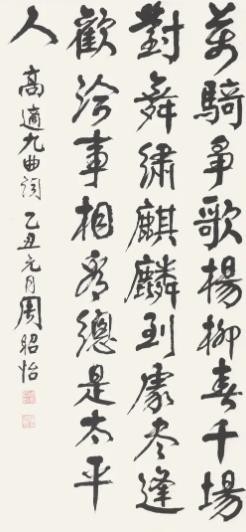 萬騎爭歌楊柳春千場
對舞繡麒麟到處尽逢
歡洽事相看總是太平
人
高適九曲詞乙丑元月周昭怡